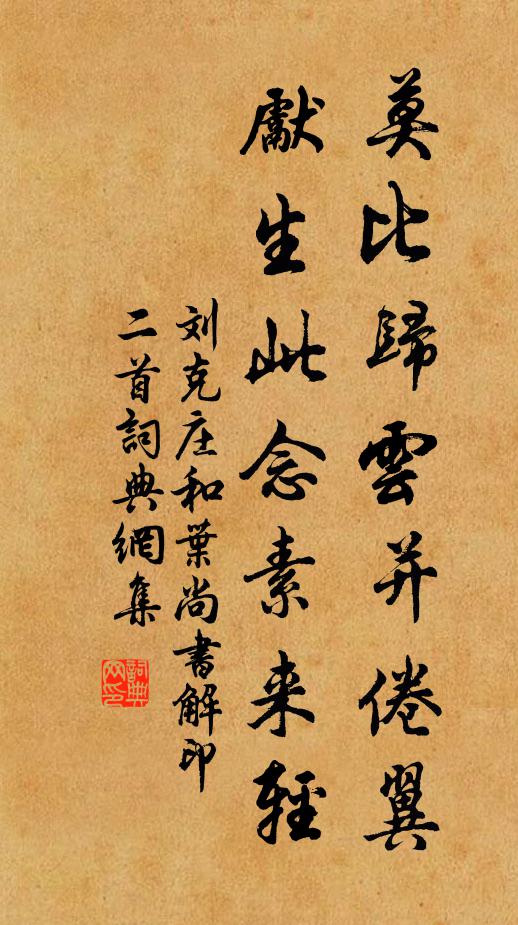 莫比歸雲并倦翼
厭生此念素来輕
刘克庄和葉尚書解印
二首詞典網集
詞典网印